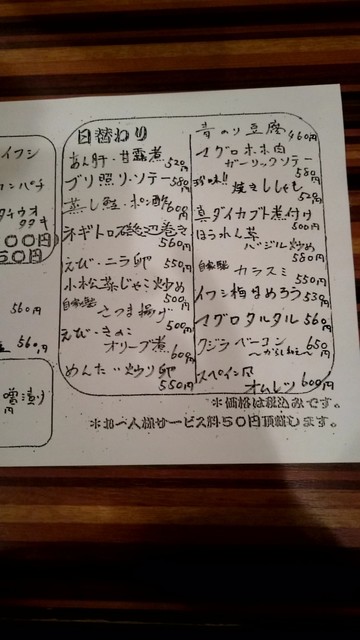 イワシ
カンパチ
タチウオ
タタキ
００円
５０円
560円
560円
噌漬け
円
日替わり
あん肝・甘露煮 520円
ブリ照り・ソテー 580円
蒸し鮭・ポン酢 600円
ネギトロ磯辺巻き
560円
えび・ニラ卵 550円
小松菜じゃこ炒め 500円
自家製 さつま揚げ 500円
えび・きのこ
オリーブ煮 600円
めんたい炒り卵
550円
青のり豆腐 460円
マグロホホ肉
ガーリックソテー
580円
珍味!! 焼きししゃも 520円
真ダイカブト煮付け 500円
ほうれん草
バジル炒め
580円
自家製 カラスミ 550円
イワシ梅なめろう 530円
マグロタルタル 560円
クジラベーコン 650円
〜からしポン酢〜
スペイン風
オムレツ 600円
＊価格は税込みです。
＊お一人様サービス料５０円頂戴します。